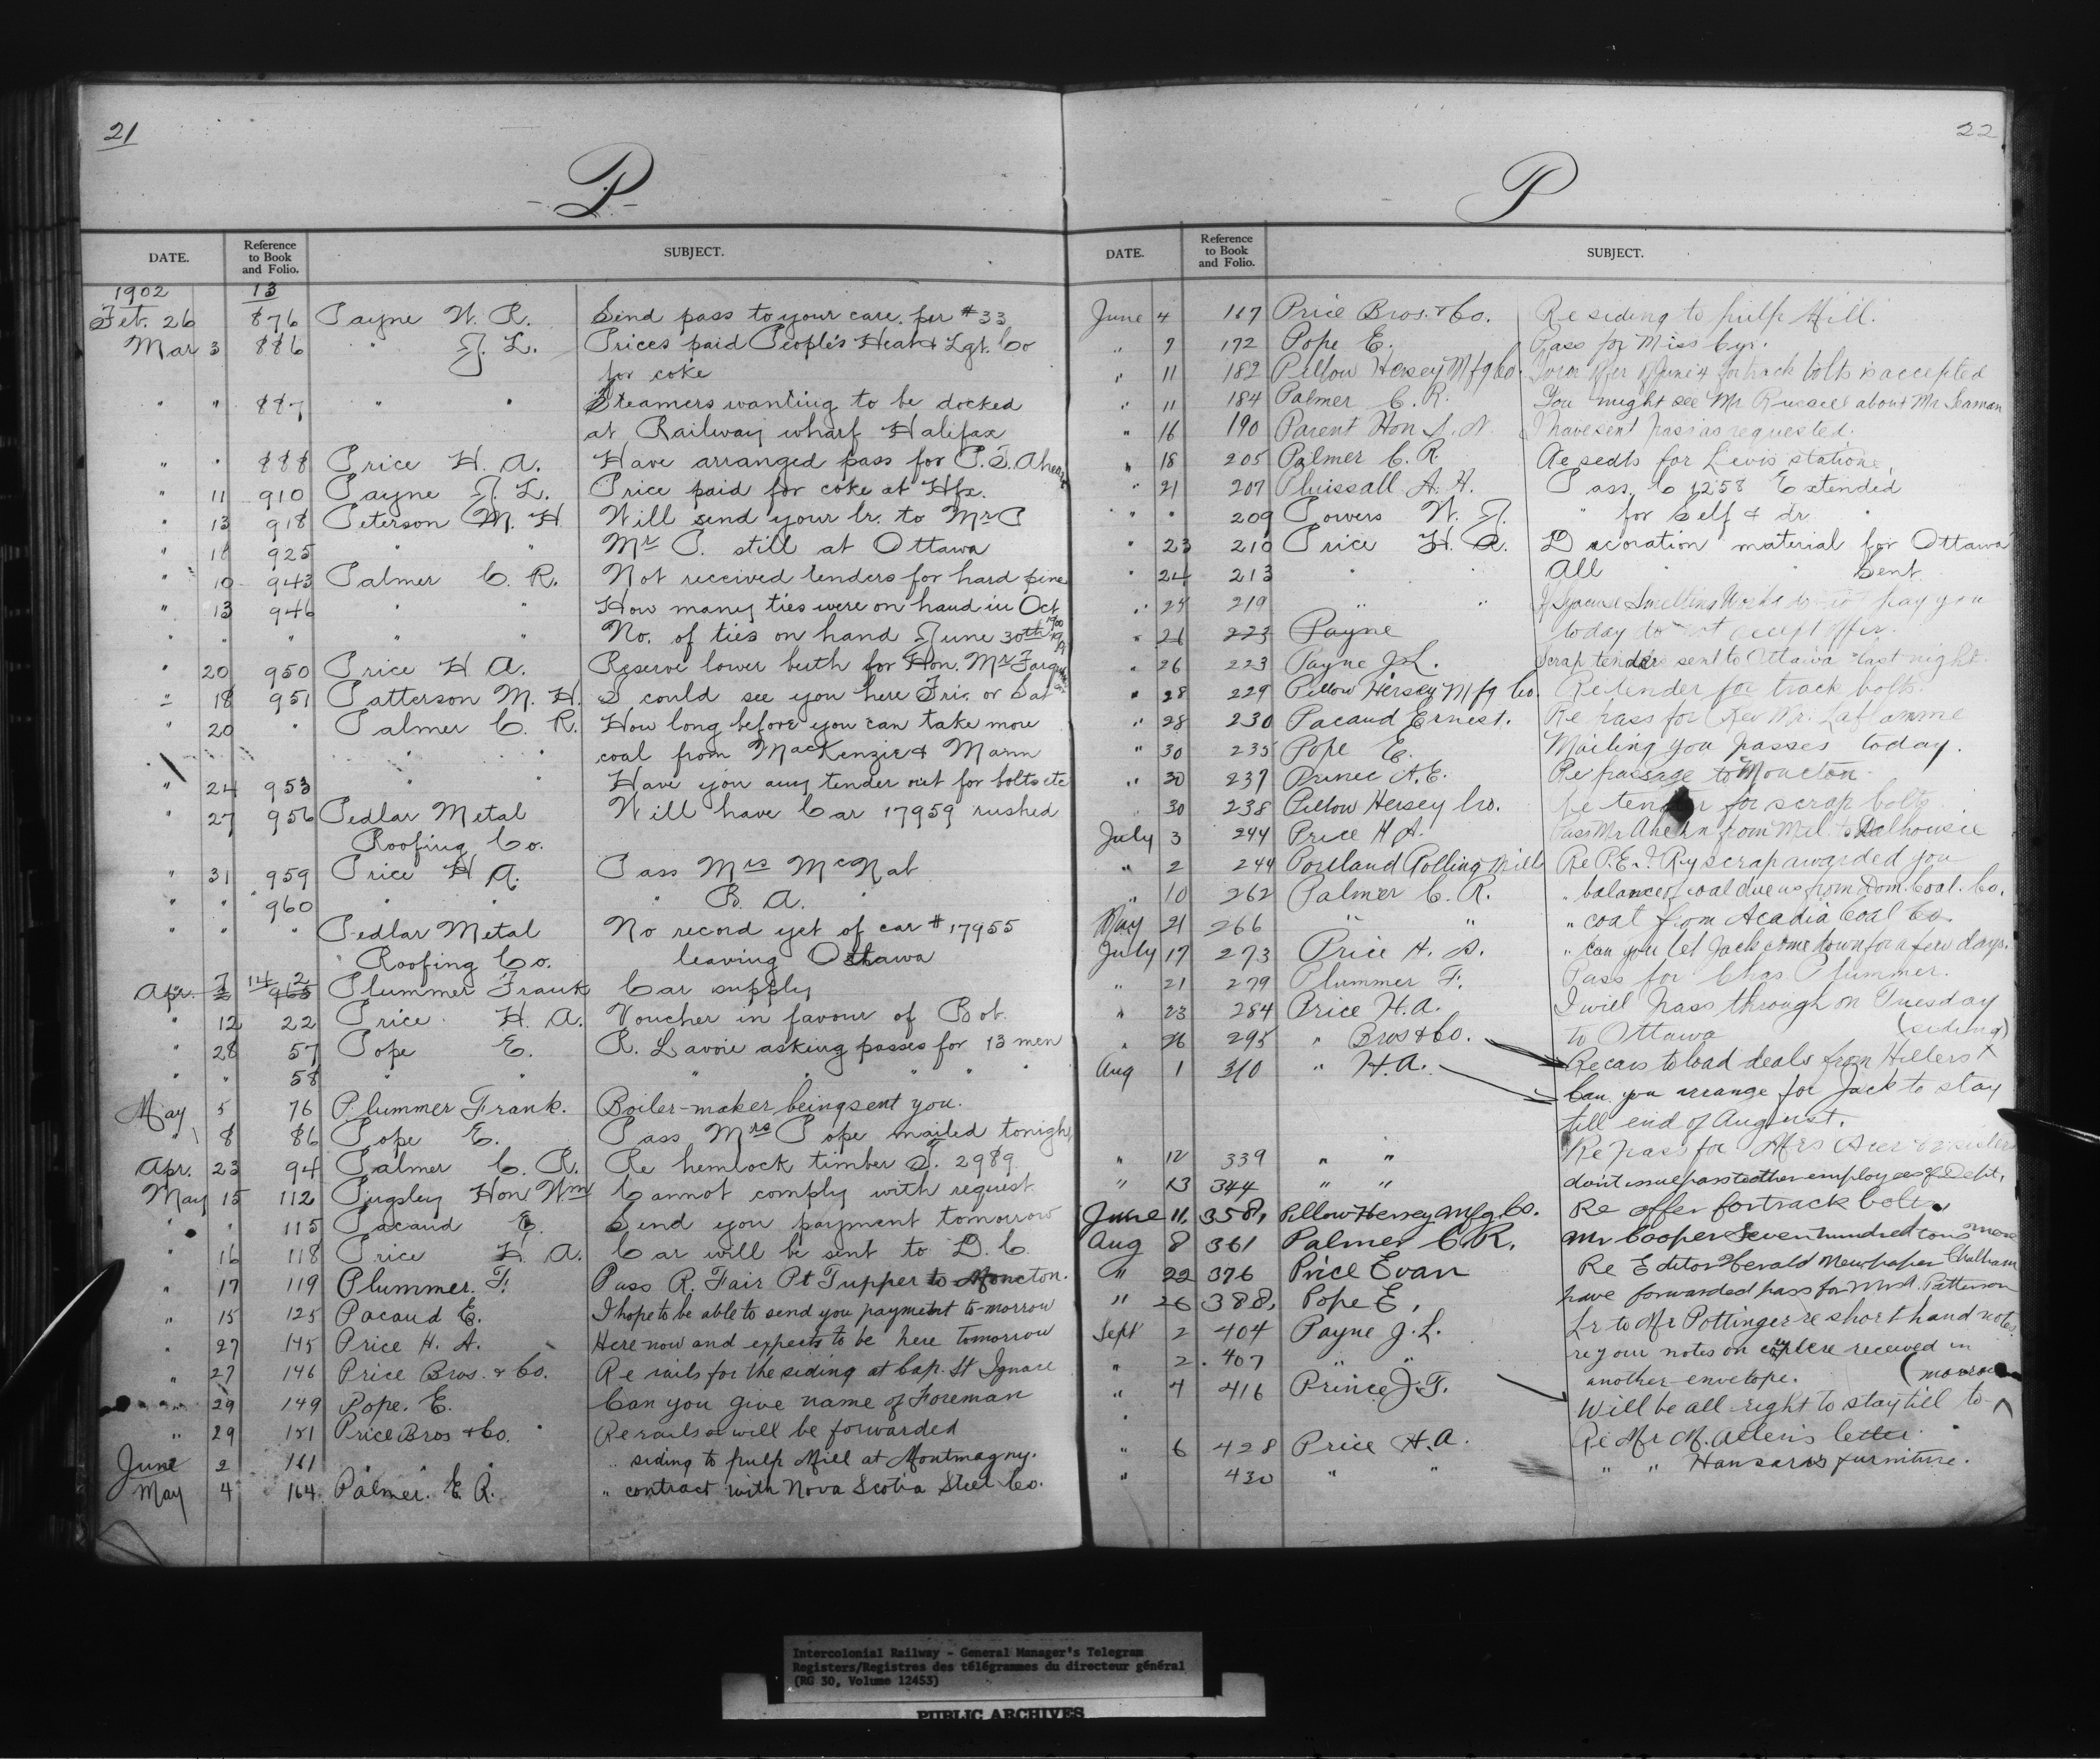 21
P
DATE. Reference to Book and Folio. SUBJECT.
1902 13
Feb. 26 876 Payne W. R. Send pass to your care per #33
Mar 3 886 " J. L. Prices paid People's Heat & Lgt. Co
for coke
" " 887 " " Steamers wanting to be docked
at Railway wharf Halifax
" " 888 Price H. A. Have arranged pass for P. S. Ahearn
" 11 910 Payne J. L. Price paid for coke at Hfx.
" 13 918 Peterson M. H. Will send your lr. to Mr P
" 18 925 " " Mr P. still at Ottawa
" 10 943 Palmer C. R. Not received tenders for hard pine
" 13 946 " " How many ties were on hand in Oct. 1900
" " " " " No. of ties on hand June 30th
" 20 950 Price H. A. Reserve lower berth for Hon. Mr
" 18 951 Patterson M. H. I could see you here Fri. or Sat
" 20 " Palmer C. R. How long before you can take more
" " coal from MacKenzie & Mann
" 24 953 " " Have you any tender out for bolts etc
" 27 956 Pedlar Metal Will have Car 17959 rushed
Roofing Co.
" 31 959 Price H A. Pass Mrs McNab
" " 960 " " " B. A. "
" " " Pedlar Metal No record yet of car # 17955
" Roofing Co. leaving Oshawa
Apr. 7 14 2 965 Plummer Frank Car supply
" 12 22 Price H. A. Voucher in favour of Bot.
" 28 57 Pope E. R. Lavoie asking passes for 13 men
" " 58 " " " " " "
May 5 76 Plummer Frank. Boiler-maker being sent you.
" 8 86 Pope E. Pass Mrs Pope mailed tonight
Apr. 23 94 Palmer C. R. Re hemlock timber T. 2989
May 15 112 Pugsley Hon Wm Cannot comply with request
" " 115 Pacaud E. Send you payment tomorrow
" 16 118 Price H. A. Car will be sent to D. C.
" 17 119 Plummer. F. Pass R. Fair Pt Tupper to Moncton.
" 15 125 Pacaud E. I hope to be able to send you payment to-morrow
" 27 145 Price H. A. Here now and expects to be here tomorrow
" 27 146 Price Bros. & Co. Re rails for the siding at Cap. St Ignace
" 29 149 Pope. E. Can you give name of Foreman
" 29 151 Price Bros & Co. Re rails will be forwarded
June 2 161 " " " siding to pulp Mill at Montmagny.
May 4 164 Palmer. E. R. " contract with Nova Scotia Steel Co.
22
P
DATE. Reference to Book and Folio. SUBJECT.
June 4 167 Price Bros. & Co. Re siding to pulp Mill.
" 7 172 Pope E. Pass for Miss Cyr.
" 11 182 Pillow Hersey Mfg Co. June 4 for track bolts is accepted
" 11 184 Palmer C. R. You might see Mr Russell about Mr Seaman
" 16 190 Parent Hon S. N. I have sent pass as requested.
" 18 205 Palmer C. R. Re seats for Levis station,
" 21 207 A. H. Pass C 1258 Extended
" " 209 Powers W. J. " for self & dr.
" 23 210 Price H. A. Decoration material for Ottawa
" 24 213 " " All " " sent
" 24 219 " " If Syracuse Smelting Works do not pay you
" 26 223 Payne today do not accept offer.
" 26 223 Payne J. L. Scrap tenders sent to Ottawa last night.
" 28 229 Pillow Hersey Mfg Co. Re tender for track bolts.
" 28 230 Pacaud Ernest. Re pass for Rev Mr. Laflamme
" 30 235 Pope E. Mailing you passes today.
" 30 237 Prince A. E. Re passage to Moncton.
" 30 238 Pillow Hersey Co. Re tender for scrap bolts
July 3 244 Price H A. Pass Mr Ahern from Mtl. to Dalhousie
" 2 244 Portland Rolling Mills Re P. E. I. Ry scrap awarded you
" 10 262 Palmer C. R. " balance of coal due us from Dom. Coal. Co.
May 21 266 " " " coal from Acadia Coal Co.
July 17 273 Price H. A. " Can you let Jack come down for a few days.
" 21 279 Plummer F. Pass for Chas Plummer.
" 23 284 Price H. A. I will pass through on Tuesday
to Ottawa (siding)
" 26 295 " Bros & Co. Re cars to load deals from Hillers
Aug 1 310 " H. A. Can you arrange for Jack to stay
till end of August.
" 12 339 " " Re pass for Mrs
" 13 344 " " don't issue pass to other employees of Dept.
June 11, 358, Pillow Hersey Mfg. Co. Re offer for track bolts.
Aug 8 361 Palmer C. R. Mr Cooper Seven hundred tons more
" 22 376 Price Evan Re Editor Herald Newspaper Chatham
" 26 388, Pope E, have forwarded pass for Mrs A. Patterson
Sept 2 404 Payne J. L. Lr to Mr Pottinger re short hand notes.
" 2. 407 " " re your notes on were received in
another envelope. (morrow
" 4 416 Prince J. T. Will be all right to stay till to-
" 6 428 Price H. A. Re Mr M. Allen's letter.
" 430 " " " " Hansards furniture.
Intercolonial Railway - General Manager's Telegram
Registers/Registres des télégrammes du directeur général
(RG 30, Volume 12453)
PUBLIC ARCHIVES